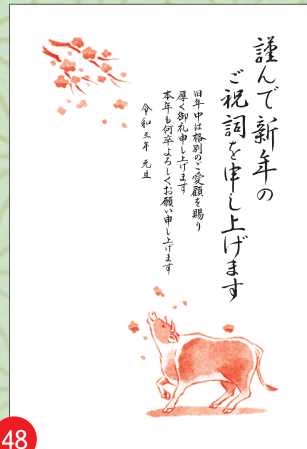 謹んで新年の
ご祝詞を申し上げます
旧年中は格別のご愛顧を賜り
厚く御礼申し上げます
本年も何卒よろしくお願い申し上げます
令和三年 元旦
48